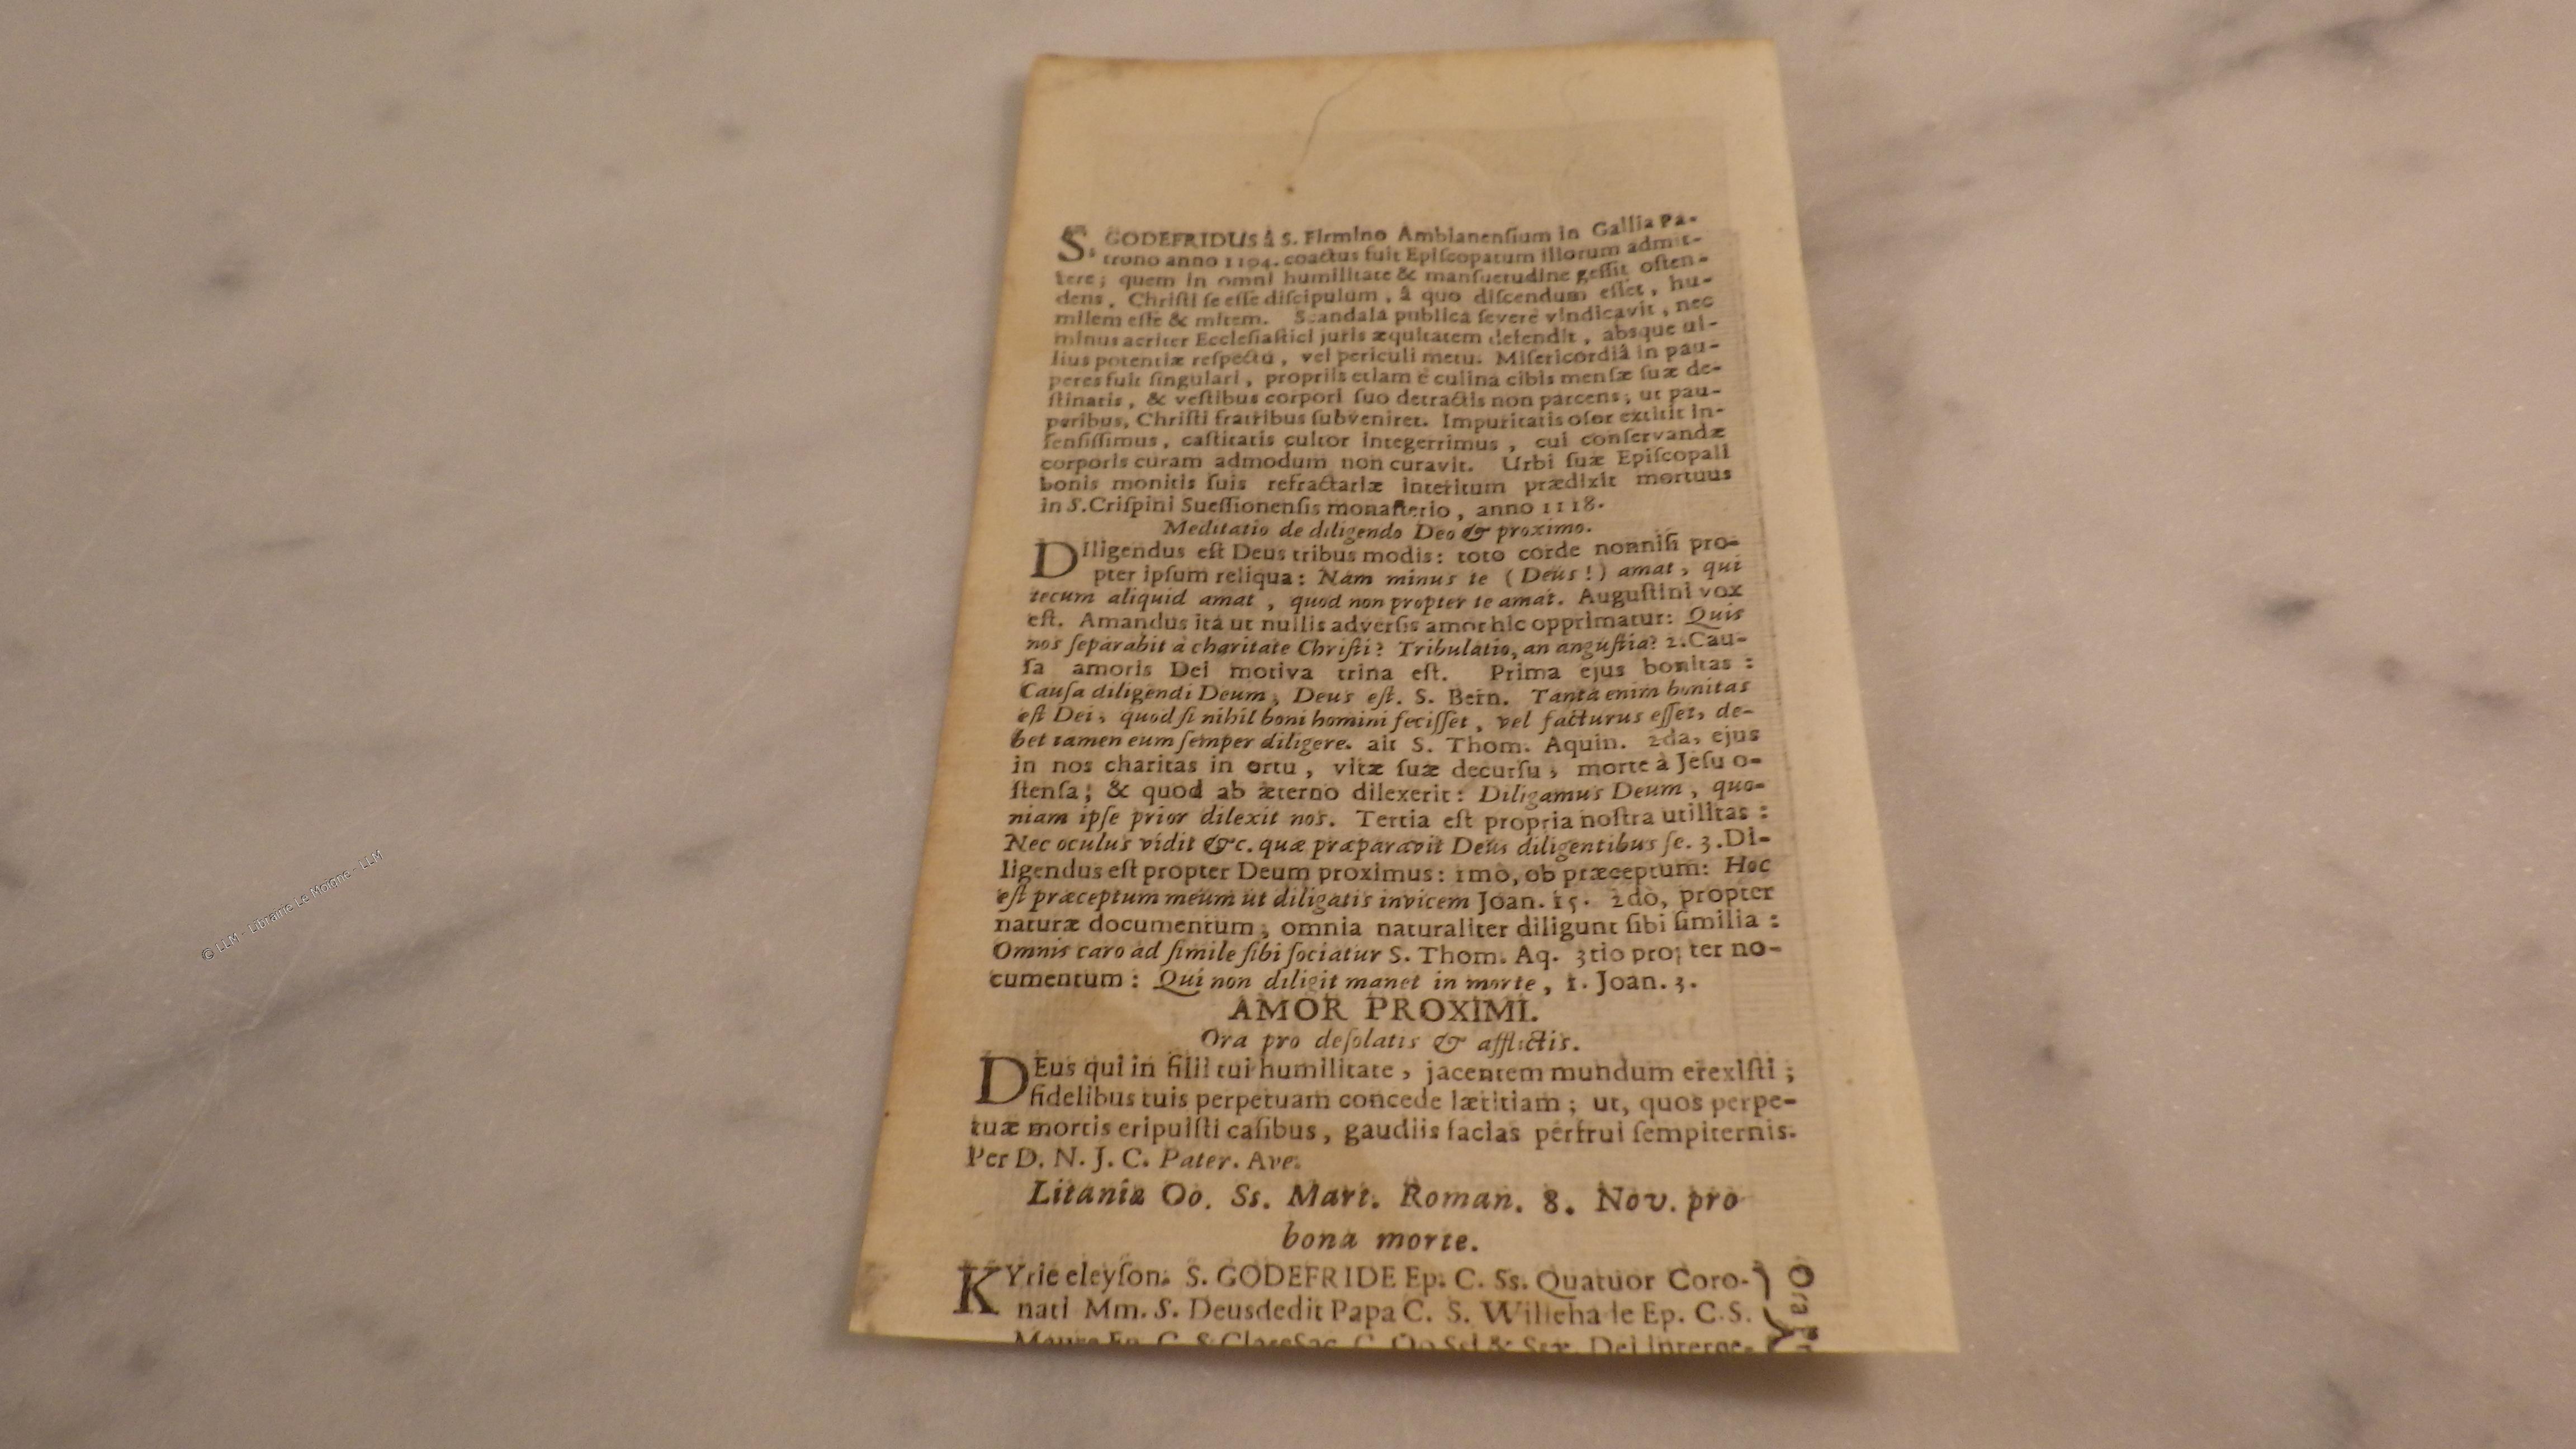 S. GODEFRIDUS â S. Firmino Ambianenſium in Gallia Pa-
trono anno 1104. coactus fuit Epiſcopatum illorum admit-
tere; quem in omni humilitate & manſuetudine geſſit oſten-
dens, Chriſti ſe eſſe diſcipulum, â quo diſcendum eſſet, hu-
milem eſſe & mitem. Scandala publica ſeverè vindicavit, nec
minus acriter Eccleſiaſtici juris æquitatem defendit, absque ul-
lius potentiæ reſpectu, vel periculi metu. Miſericordiâ in pau-
peres fuit ſingulari, propriis etiam è culina cibis menſæ ſuæ de-
ſtinatis, & veſtibus corpori ſuo detractis non parcens, ut pau-
peribus, Chriſti fratribus ſubveniret. Impuritatis oſor extitit in-
fenſiſſimus, caſtitatis cultor integerrimus, cui conſervandæ
corporis curam admodum non curavit. Urbi ſuæ Epiſcopali
bonis monitis ſuis refractariæ interitum prædixit mortuus
in S. Criſpini Sueſſionenſis monaſterio, anno 1118.
Meditatio de diligendo Deo & proximo.
DIligendus eſt Deus tribus modis: toto corde nonniſi pro-
pter ipſum reliqua: Nam minus te (Deus!) amat, qui
tecum aliquid amat, quod non propter te amat. Auguſtini vox
eſt. Amandus itâ ut nullis adverſis amor hic opprimatur: Quis
nos ſeparabit à charitate Chriſti? Tribulatio, an anguſtia? 2. Cau-
ſa amoris Dei motiva trina eſt. Prima ejus bonitas:
Cauſa diligendi Deum, Deus eſt. S. Bern. Tanta enim bonitas
eſt Dei, quod ſi nihil boni homini feciſſet, vel facturus eſſet, de-
bet tamen eum ſemper diligere. ait S. Thom. Aquin. 2da, ejus
in nos charitas in ortu, vitæ ſuæ decurſu, morte à Jeſu o-
ſtenſa; & quod ab æterno dilexerit: Diligamus Deum, quo-
niam ipſe prior dilexit nos. Tertia eſt propria noſtra utilitas:
Nec oculus vidit &c. quæ præparavit Deus diligentibus ſe. 3. Di-
ligendus eſt propter Deum proximus: 1mò, ob præceptum: Hoc
eſt præceptum meum ut diligatis invicem Joan. 15. 2dò, propter
naturæ documentum, omnia naturaliter diligunt ſibi ſimilia:
Omnis caro ad ſimile ſibi ſociatur S. Thom. Aq. 3tio propter no-
cumentum: Qui non diligit manet in morte, 1. Joan. 3.
AMOR PROXIMI.
Ora pro deſolatis & afflictis.
DEus qui in filii tui humilitate, jacentem mundum erexiſti;
fidelibus tuis perpetuam concede lætitiam; ut, quos perpe-
tuæ mortis eripuiſti caſibus, gaudiis facias perfrui ſempiternis.
Per D. N. J. C. Pater. Ave.
Litaniæ Oo. Ss. Mart. Roman. 8. Nov. pro
bona morte.
KYrie eleyſon. S. GODEFRIDE Ep. C. Ss. Quatuor Coro-
nati Mm. S. Deusdedit Papa C. S. Willehade Ep. C. S.
Maure Ep. C. S. Clare Sac. C. Oo Ssi & Ssæ. Dei Interce-
Ora
© LLM - Librairie Le Moigne - LLM